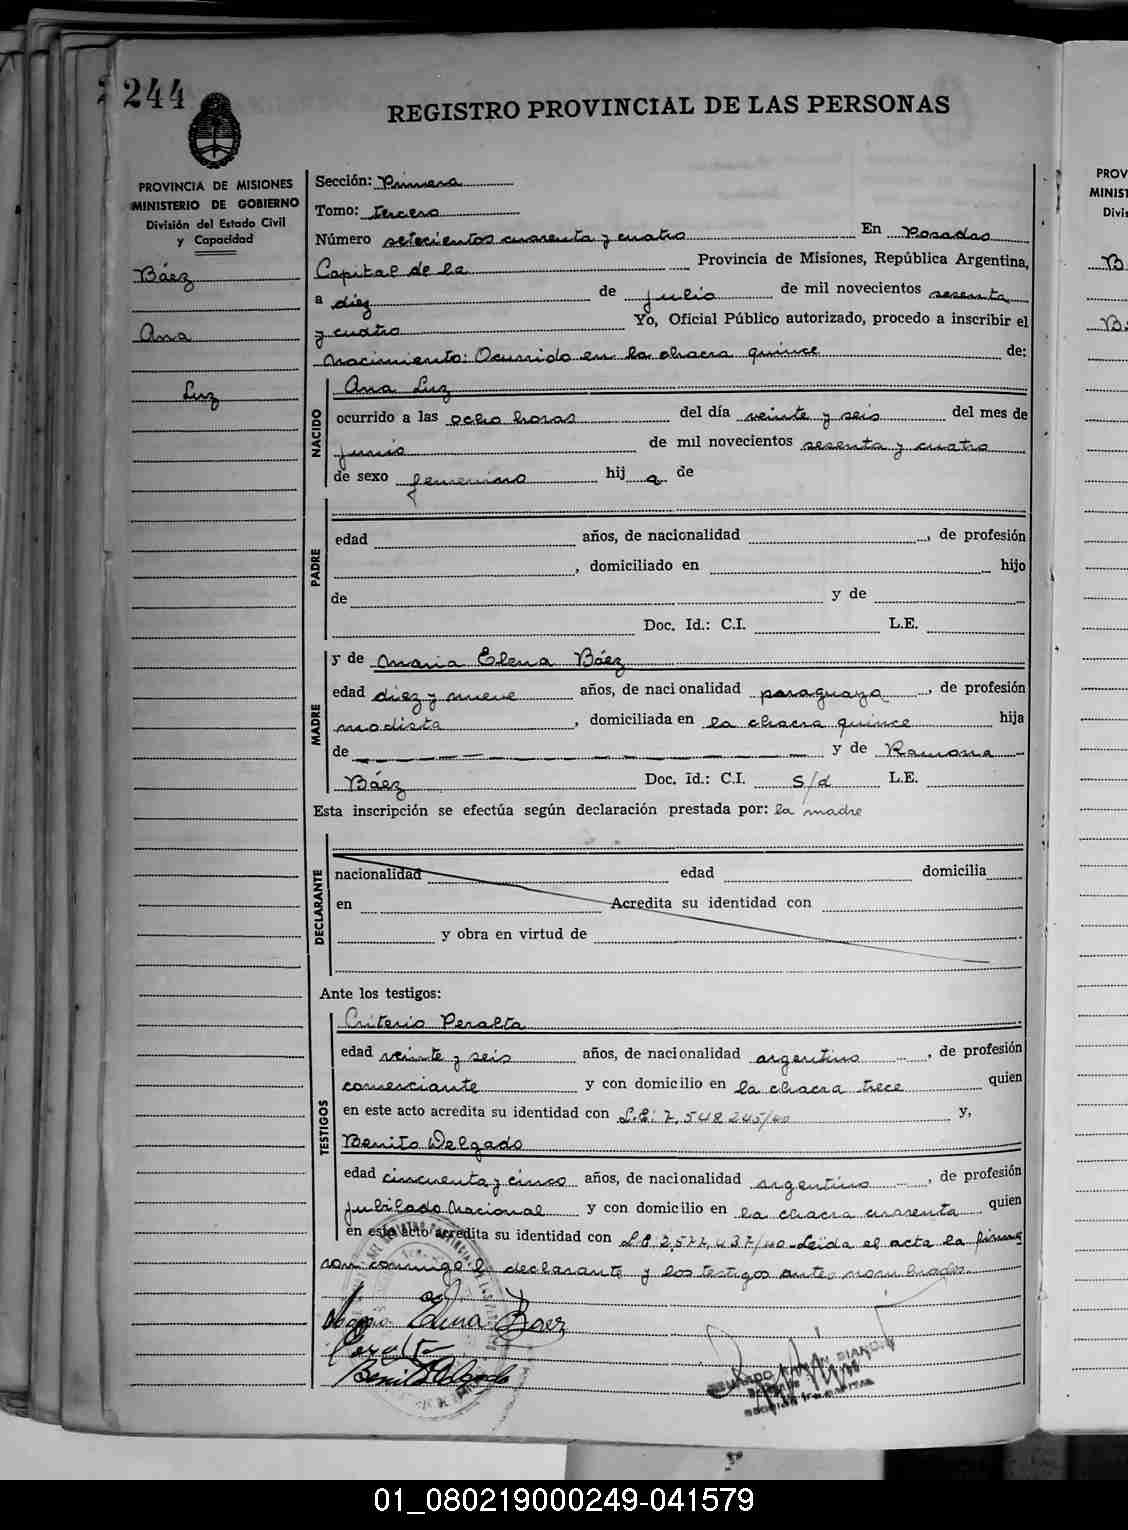 244
REGISTRO PROVINCIAL DE LAS PERSONAS
PROVINCIA DE MISIONES
MINISTERIO DE GOBIERNO
División del Estado Civil
y Capacidad
Báez
Ana
Luz
Sección: Primera
Tomo: tercero
Número setecientos cuarenta y cuatro En Posadas
Capital de la Provincia de Misiones, República Argentina,
a diez de julio de mil novecientos sesenta
y cuatro Yo, Oficial Público autorizado, procedo a inscribir el
nacimiento: Ocurrido en la chacra quince de:
NACIDO
Ana Luz
ocurrido a las ocho horas del día veinte y seis del mes de
junio de mil novecientos sesenta y cuatro
de sexo femenino hij a de
PADRE
edad años, de nacionalidad , de profesión
, domiciliado en hijo
de y de
Doc. Id.: C.I. L.E.
MADRE
y de Maria Elena Báez
edad diez y nueve años, de nacionalidad paraguaya , de profesión
modista , domiciliada en la chacra quince hija
de y de Ramona
Báez Doc. Id.: C.I. s/d L.E.
Esta inscripción se efectúa según declaración prestada por: la madre
DECLARANTE
nacionalidad edad domicilia
en Acredita su identidad con
y obra en virtud de
Ante los testigos:
TESTIGOS
Criterio Peralta
edad veinte y seis años, de nacionalidad argentino , de profesión
comerciante y con domicilio en la chacra trece quien
en este acto acredita su identidad con L.E: 7,548245/40 y,
Benito Delgado
edad cincuenta y cinco años, de nacionalidad argentino , de profesión
jubilado Nacional y con domicilio en la chacra cuarenta quien
en este acto acredita su identidad con L.E 2,577,437/40 Leida el acta la firman
con conmigo la declarante y los testigos antes nombrados.
Maria Elena Baez
Peralta
Benito Delgado
PROV
MINIST
Divi
B
Bá
01_080219000249-041579